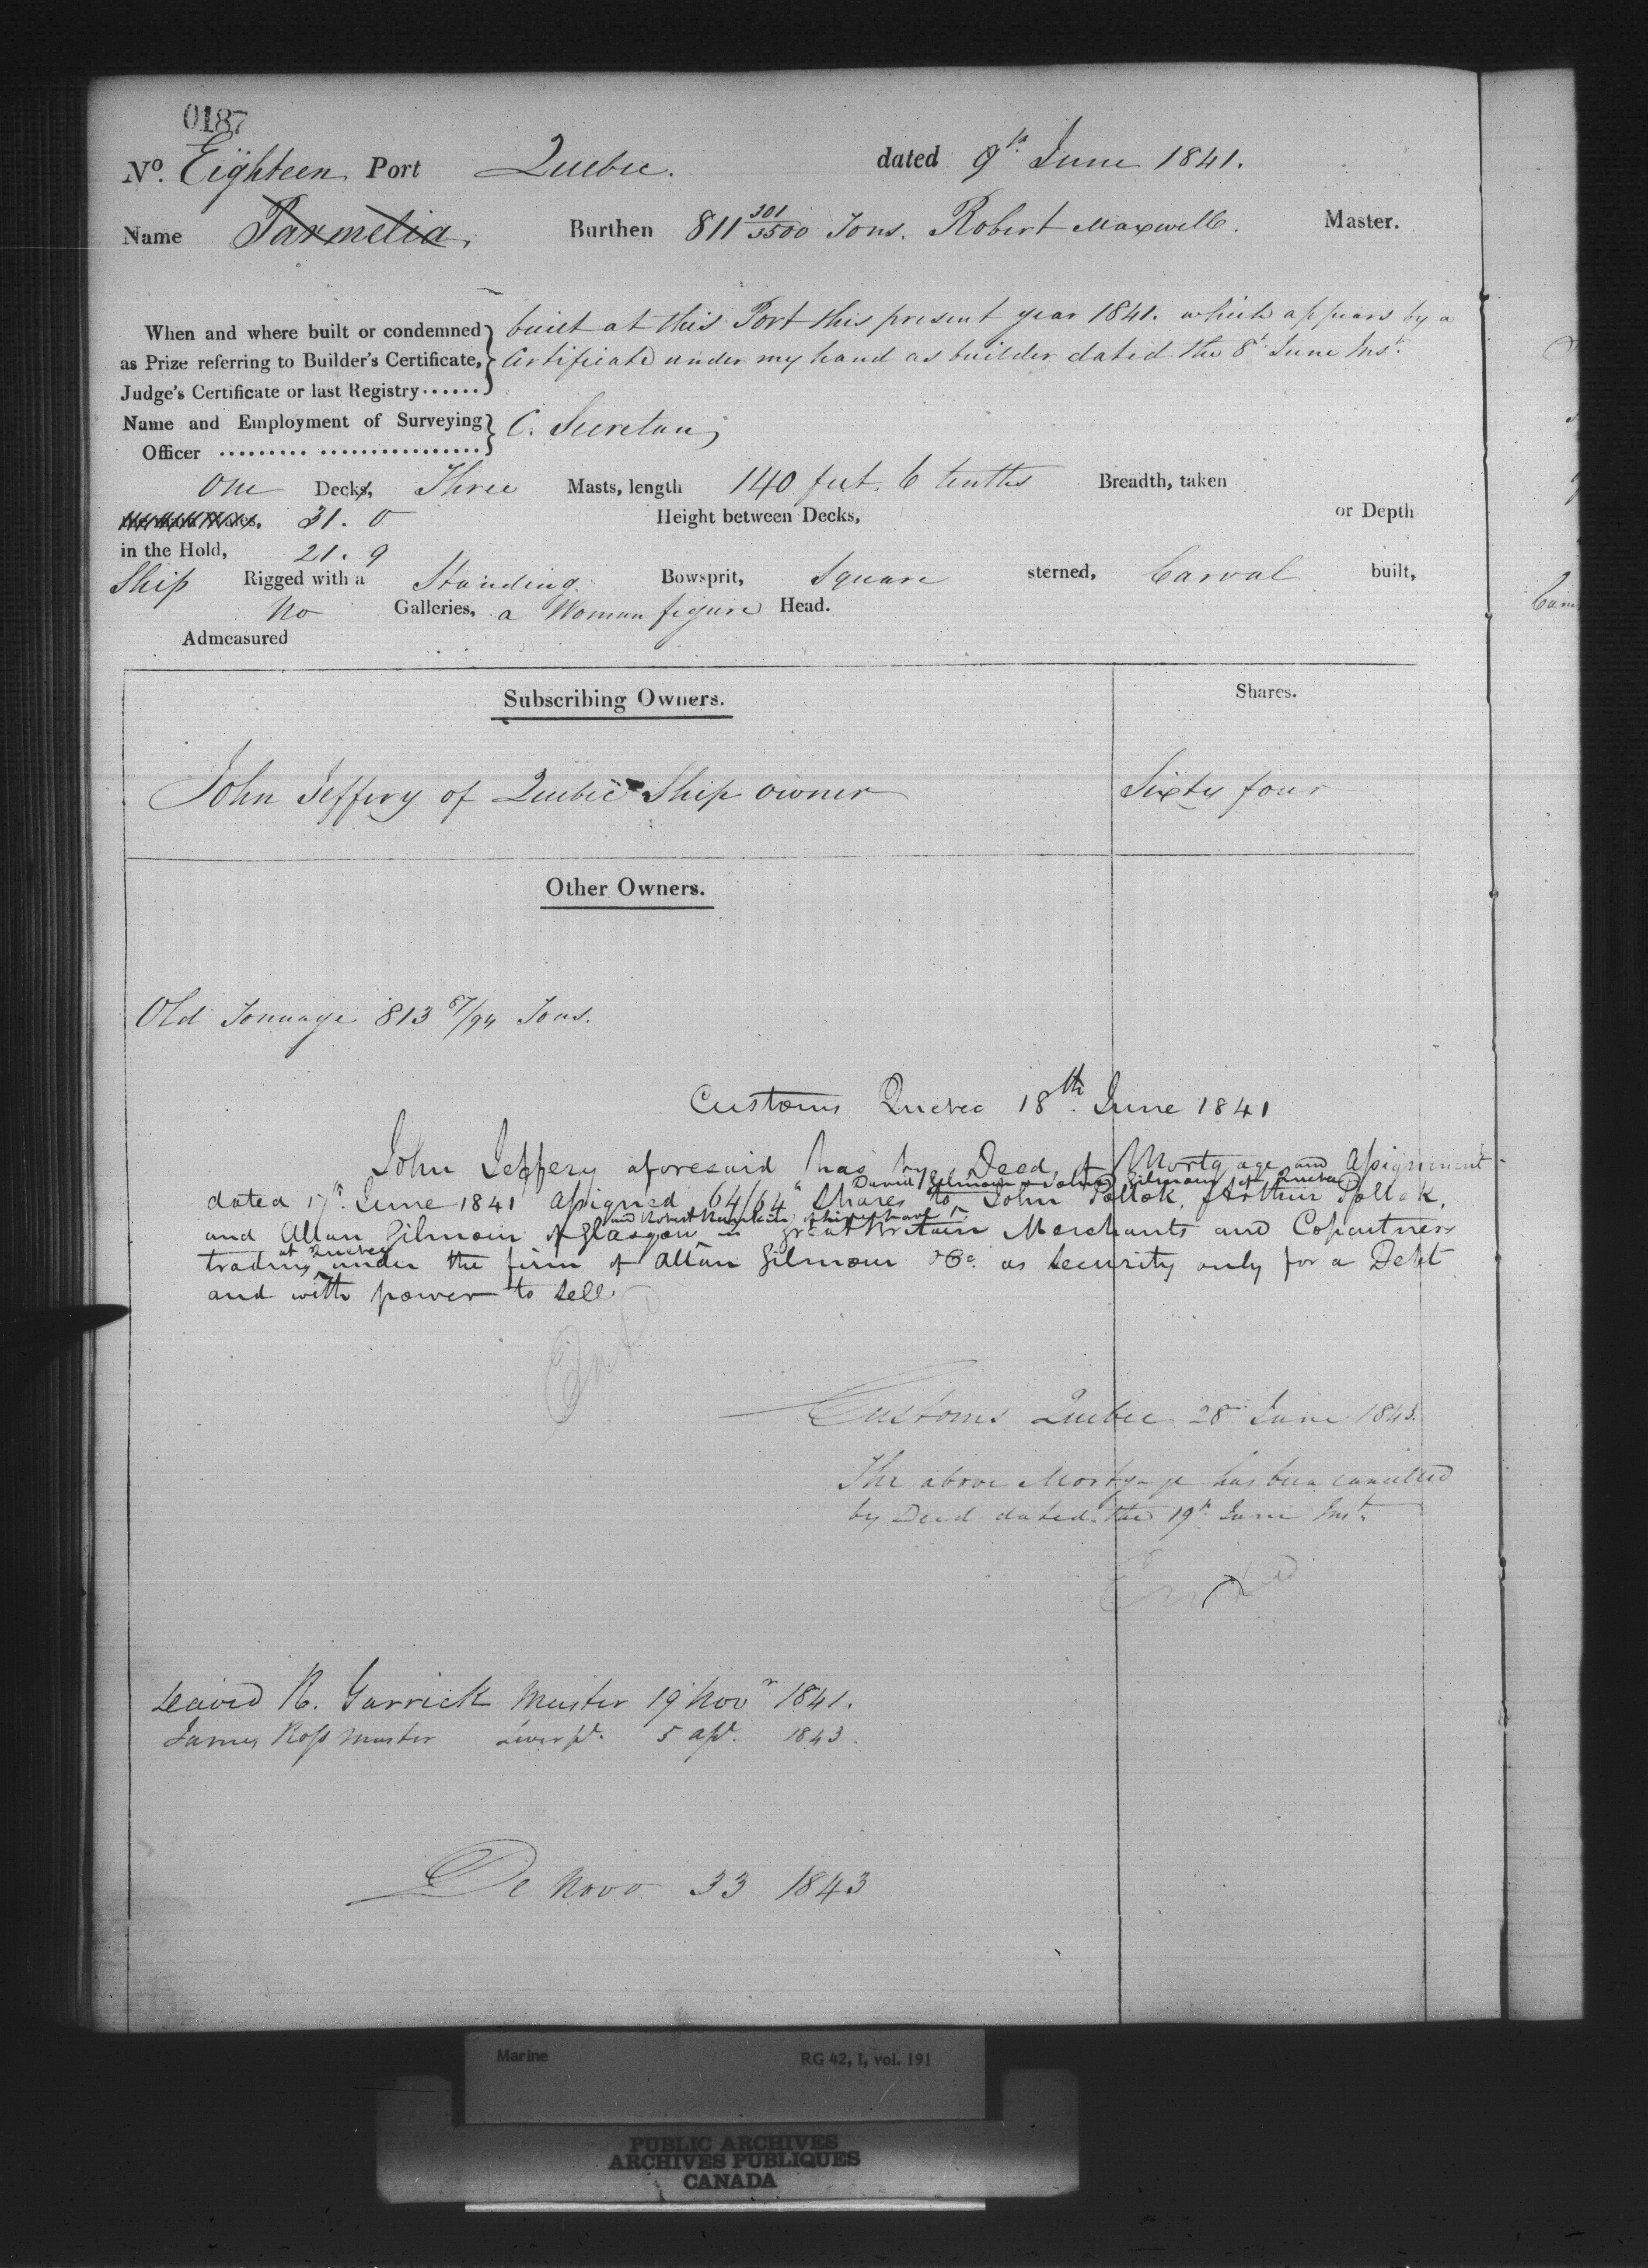 0187
No. Eighteen Port Quebec. dated 9th June 1841.
Name Parmelia, Burthen 811 301/3500 Tons. Robert Maxwell. Master.
When and where built or condemned built at this Port this present year 1841. which appears by a
as Prize referring to Builder's Certificate, Certificate under my hand as builder dated the 8th June Inst.
Judge's Certificate or last Registry......
Name and Employment of Surveying C. Secretan,
Officer ......... ................
One Decks, Three Masts, length 140 feet. 6 tenths Breadth, taken
31. 0 Height between Decks, or Depth
in the Hold, 21. 9
Ship Rigged with a Standing Bowsprit, Square sterned, Carval built,
No Galleries, a Woman figure Head.
Admeasured
Subscribing Owners. Shares.
John Jeffery of Quebec Ship owner Sixty four
Other Owners.
Old Tonnage 813 87/94 Tons.
Customs Quebec 18th June 1841
John Jeffery aforesaid has by Deed of Mortgage and Assignment
David Gilmour & John Gilmour of Quebec
dated 17th June 1841 assigned 64/64 Shares to John Pollok, Arthur Pollok,
and Robert Rankin of Liverpool
and Allan Gilmour of Glasgow in Great Britain Merchants and Copartners
at Quebec
trading under the firm of Allan Gilmour & Co. as security only for a Debt
and with power to sell.
Entd
Customs Quebec 28th June 1843.
The above Mortgage has been cancelled
by Deed dated the 19th June Inst.
Entd
David R. Garrick Master 19 Novr 1841.
James Ross Master Liverpl. 5 Apl. 1843.
De Novo 33 1843
Marine RG 42, I, vol. 191
PUBLIC ARCHIVES
ARCHIVES PUBLIQUES
CANADA